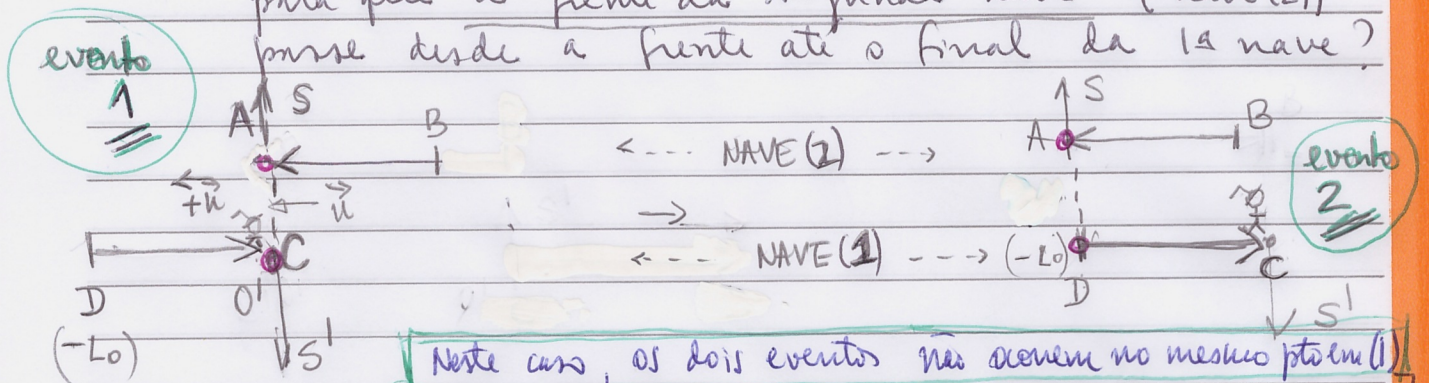 evento
1
passe desde a frente até o final da 1ª nave?
A S
B
NAVE (2)
A S
B
evento
2
+u u
C
NAVE (1)
(-L₀)
C
D O'
D
(-L₀)
S'
S'
Neste caso, os dois eventos não ocorrem no mesmo pto em (1)